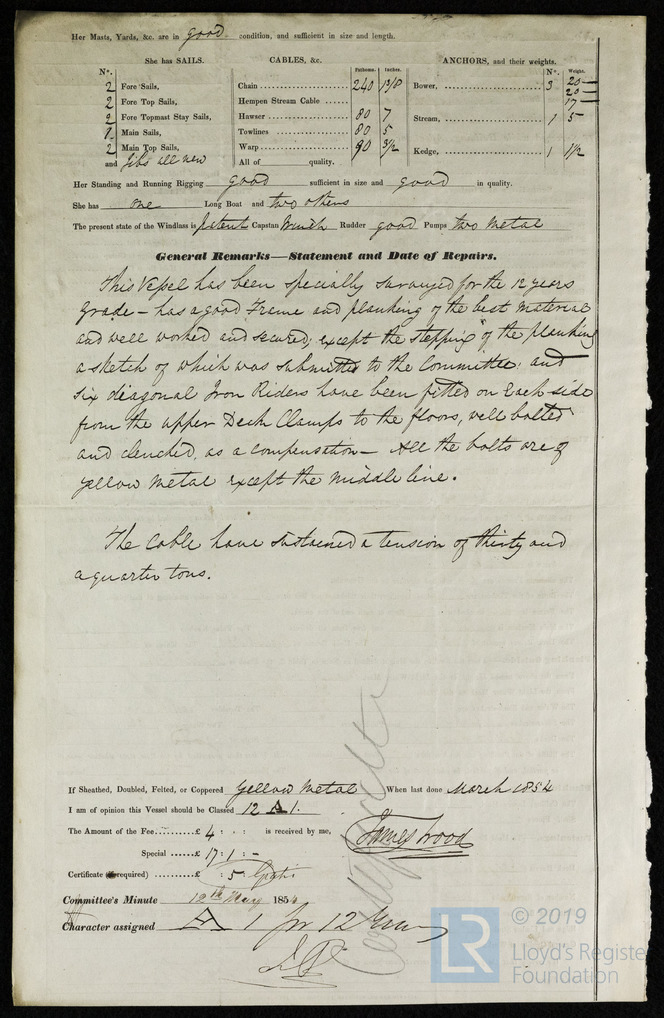 Her Masts, Yards, &c. are in good condition, and sufficient in size and length.
She has SAILS.
CABLES, &c.
Fathoms. Inches.
ANCHORS, and their weights.
N°.
N°. Weight.
2 Fore Sails,
2 Fore Top Sails,
2 Fore Topmast Stay Sails,
1 Main Sails,
2 Main Top Sails,
and Jibs all new
Chain 240 1 3/8
Hempen Stream Cable
Hawser 80 7
Towlines 80 5
Warp 90 3 1/2
All of quality.
Bower, 3 20 —
20 —
17 —
Stream, 1 5
Kedge, 1 1 1/2
Her Standing and Running Rigging good sufficient in size and good in quality.
She has one Long Boat and two others
The present state of the Windlass is patent Capstan Winch Rudder good Pumps two Metal
General Remarks—Statement and Date of Repairs.
This Vessel has been specially surveyed for the 12 years
Grade – has a good Frame and planking of the best Material
and well worked and secured, except the stepping of the planking
a sketch of which was submitted to the Committee, and
six diagonal Iron Riders have been fitted on each side
from the upper Deck Clamps to the floors, well bolted
and clenched, as a compensation – All the bolts are of
yellow Metal except the middle line.
The Cable have sustained a tension of thirty and
a quarter tons.
If Sheathed, Doubled, Felted, or Coppered Yellow Metal When last done March 1854
I am of opinion this Vessel should be Classed 12 A 1.
The Amount of the Fee £ 4 : : is received by me,
James Wood
Special £ 17 : 1 : –
Certificate (if required) £ : 5
Committee's Minute 12th May 1854
Character assigned A 1 for 12 Years
LR
© 2019
Lloyd's Register
Foundation